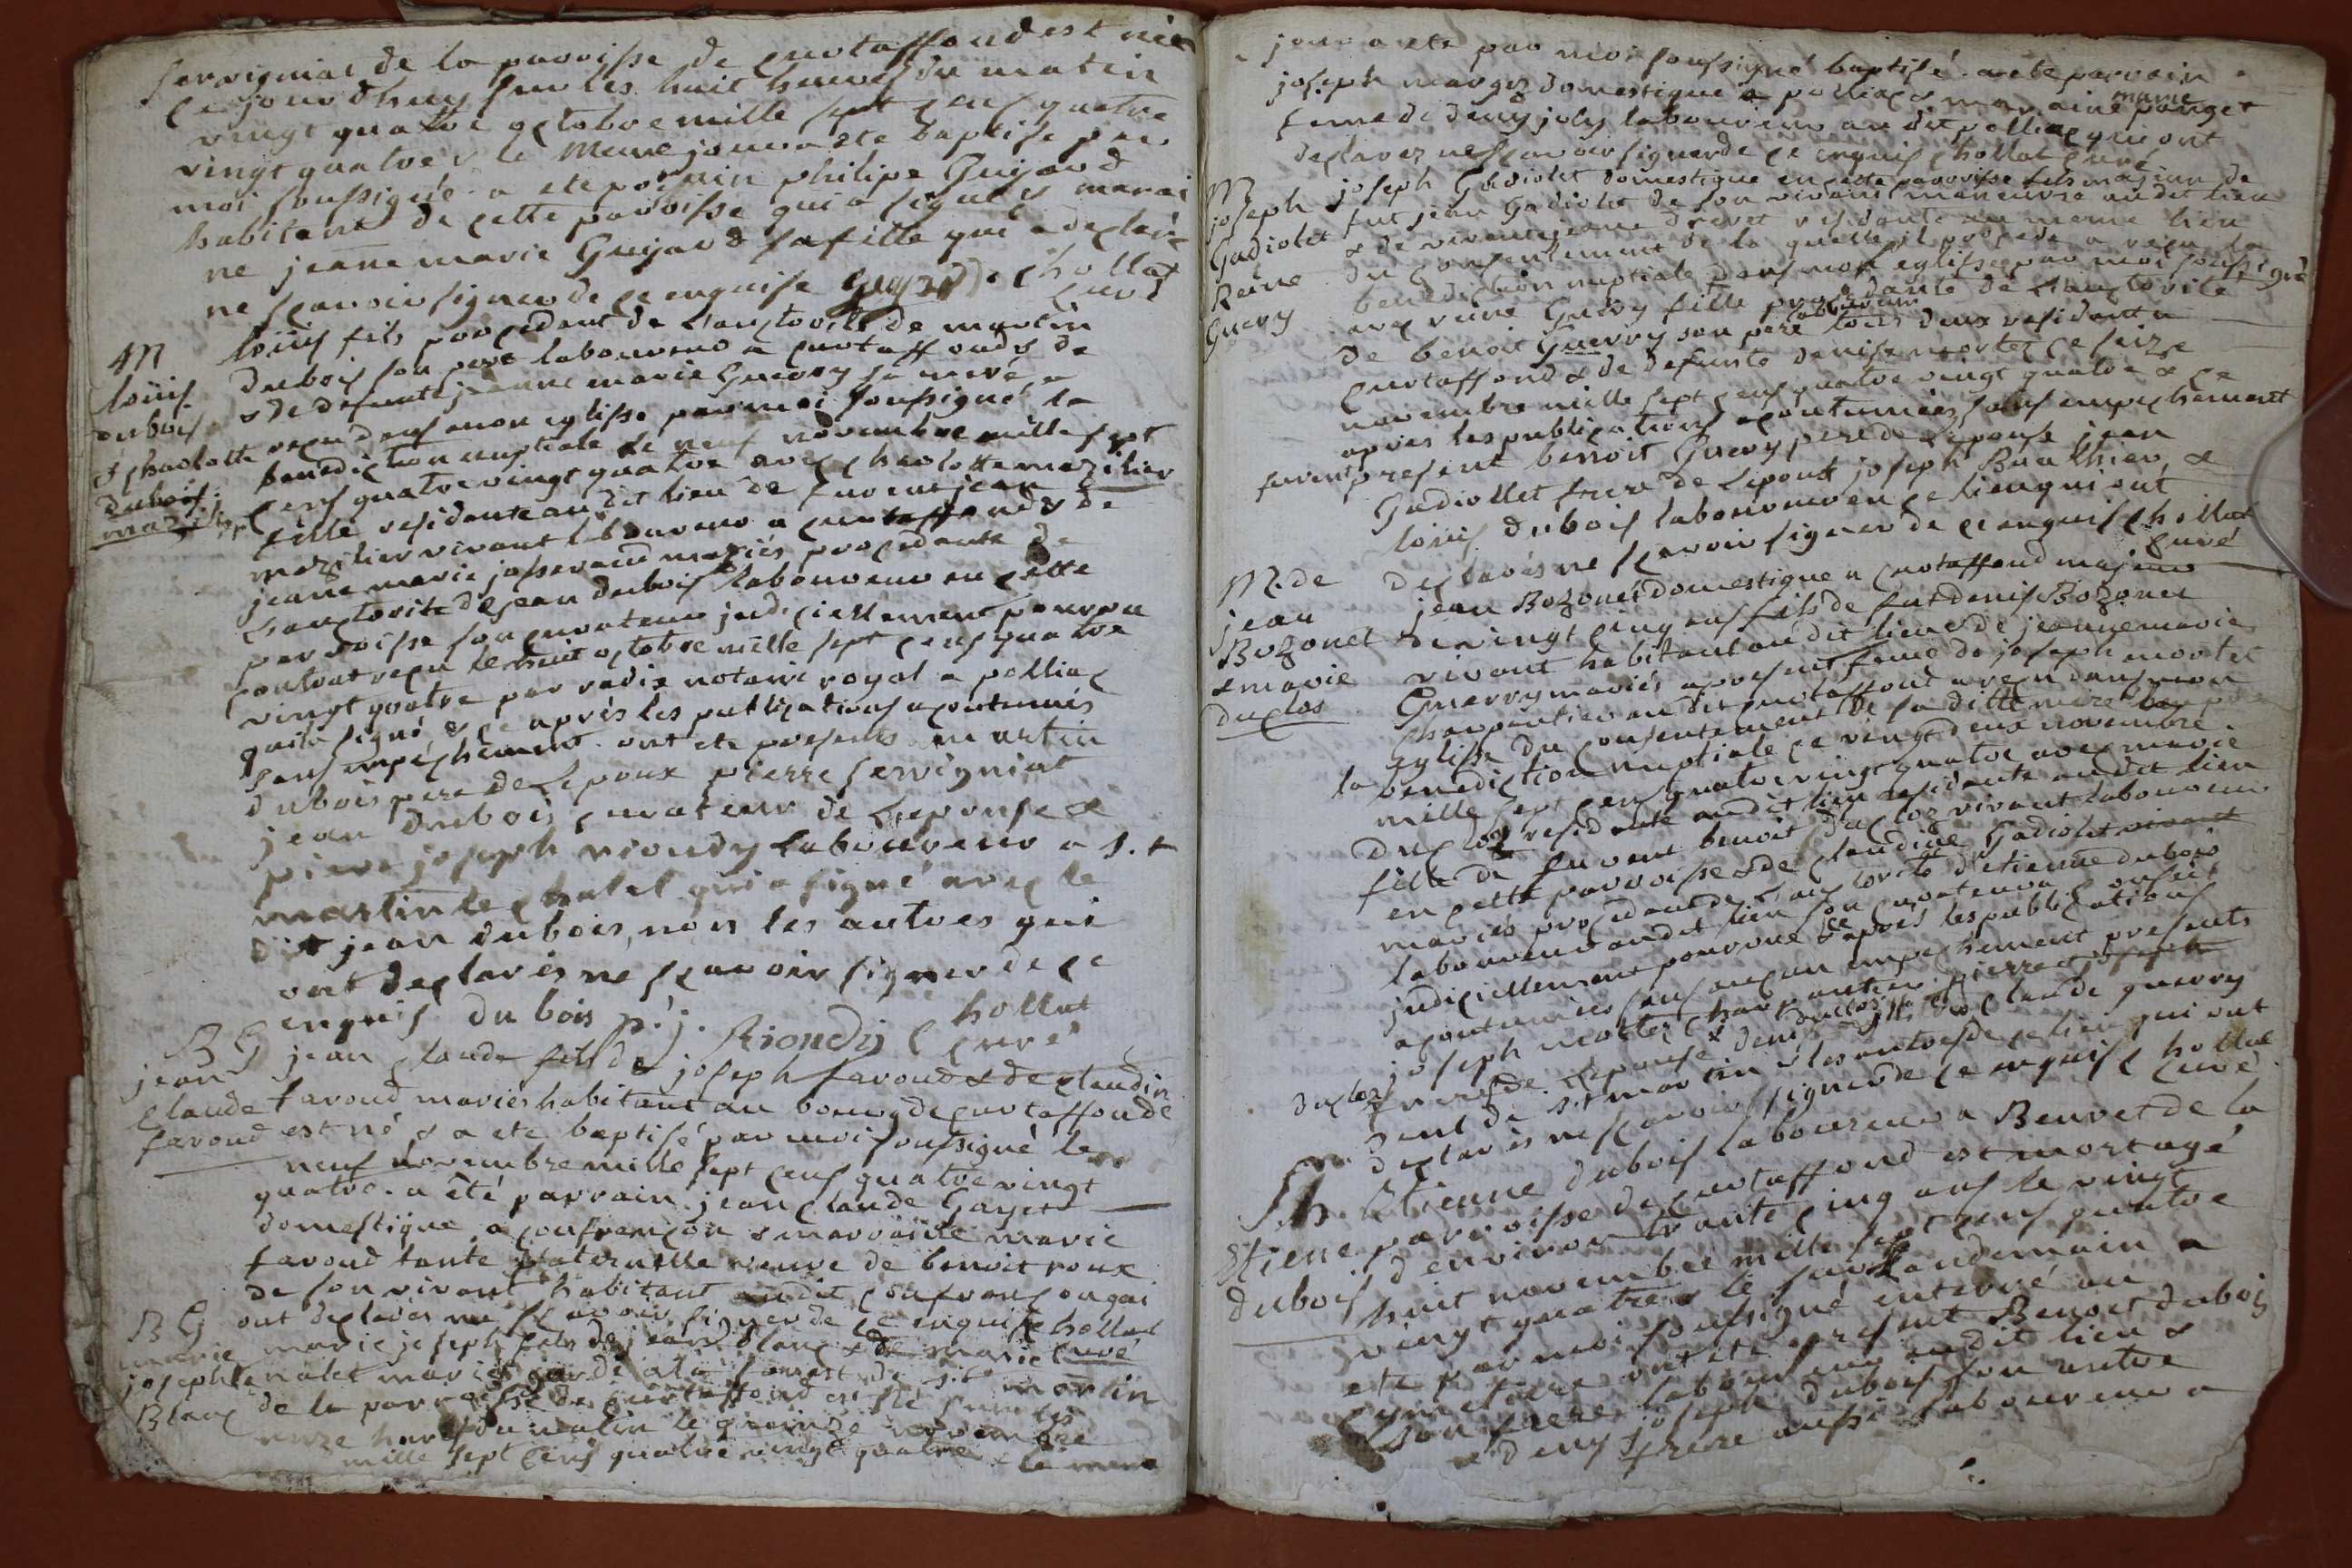 Servigniat de la paroisse de curtaffond est née
ce jourdhuy sur les huit heures du matin
vingt quatre octobre mille sept cens quatre
vingt quatre & le meme jour a ete baptisé par
moi soussigné. a ete parrain philipe Guyard
habitant de cette paroisse qui a signé & marai
ne jeanne marie Guyard sa fille qui a declaré
ne scavoir signer de ce enquise Guyard. chollat
curé
M
loüis
dubois
& charlotte
dubois.
mazilier
loüis fils procedant de l'auctorité de martin
dubois son pere laboureur a curtaffond & de
& de defunte jeanne marie Guerry sa mere, a
reçu dans mon eglisse par moi soussigné la
benediction nuptiale le neuf novembre mille sept
cens quatre vingt quatre avec charlotte mazilier
fille residante au dit lieu de furent jean
mazilier vivant laboureur a curtaffond & de
jeanne marie josserand mariés procedante de
l'auctorité de jean dubois laboureur en cette
parroisse son curateur judiciellement pourvu
contrat reçu le huit octobre mille sept cens quatre
vingt quatre par radix notaire royal a polliac
qui l'a signé & ce après les publications acoutumés
sans empechement. ont ete presents martin
dubois pere de l'epoux pierre servigniat
jean dubois curateur de l'epouse &
pierre joseph rioudy laboureur a s.t
martin le chatel qui a signé avec le
dit jean dubois, non les autres qui
ont declarés ne scavoir signer de ce
enquis dubois p. j. Rioudy chollat
curé
BG
jean
claude
favoud
jean claude fils de joseph favoud & de claudin
favoud mariés habitant au bourg de curtaffond
est né & a ete baptisé par moi soussigné le
neuf novembre mille sept cens quatre vingt
quatre. a été parrain jean claude Gayet
domestique a confrançon & marraine marie
favoud tante paternelle veuve de benoit roux
de son vivant habitant audit confrançon qui
ont declarés ne scavoir signer de ce enquis chollat
curé
BG
marie
joseph
Blanc
marie joseph fils de jean Blanc & de marie
lenalet mariés garde a la forest de s.t martin
de la paroisse de curtaffond est né sur les
onze heures du matin le quinze novembre
mille sept cens quatre vingt quatre & le meme
jour a ete par moi soussigné baptisé. a ete parrain
joseph margez domestique a polliac & marraine marie ponget
feme de deny joly laboureur au dit polliac qui ont
declarez ne scavoir signer de ce enquis chollat curé
M
joseph
Gadiolet
Reine
Guery
joseph Gadiolet domestique en cette parroisse fils majeur de
fut jean Gadiolet de son vivant maneuvre au dit lieu
& de vivante jeanne drevet residante au meme lieu
du consentement de la quelle il procede a reçu la
benediction nuptiale dans mon eglisse par moi soussigné
avec reine Guery fille procedante de l'auctorité
de benoit Guerry son pere laboureur tous deux residants a
curtaffond & de defunte denise mortel ce seize
novembre mille sept cens quatre vingt quatre & ce
apres les publications acoutumées sans empechement
furent present benoit Guery pere de l'epouse jean
Gadiollet frere de l'epoux joseph Buathier &
loüis dubois laboureur en ce lieu qui ont
declarés ne scavoir signer de ce enquis chollat
curé
M. de
jean
Bozonet
& marie
duclos
jean Bozonet domestique a curtaffond majeur
de vingt cinq ans fils de fut denis Bozonet
vivant habitant au dit lieu & de jeanne marie
Guerry mariés a present feme de joseph mortel
charpentier au dit curtaffond a reçu dans mon
eglisse du consentement de sa ditte mere
la benediction nuptiale ce vingt deux novembre
mille sept cens quatre vingt quatre avec marie
duclos residante au dit lieu
fille de furent benoit duclos vivant laboureur
en cette parroisse & de claudine Gadiolet vivant
mariés procedant de l'auctorité d'etienne dubois
laboureur au dit lieu son curateur
judiciellement pourvue & ce après les publications
acoutumées sans aucun empechement presents
joseph mortel charpentier pierre & joseph
duclos freres de l'epouse & denis duclos claude guerry
de s.t martin & les autres de ce lieu qui ont
declarés ne scavoir signer de ce enquis chollat
curé
Sh.
Etiene
dubois
Etienne dubois laboureur a Beuvet de la
parroisse de curtaffond est mort agé
d'environ trante cinq ans le vingt
huit novembre mille sept cens quatre
vingt quatre & le surlandemain a
ete par moi soussigné enterré au
cymetiere ont ete present Benoit dubois
son frere laboureur au dit lieu &
deny joseph dubois son autre
frere aussi laboureur a